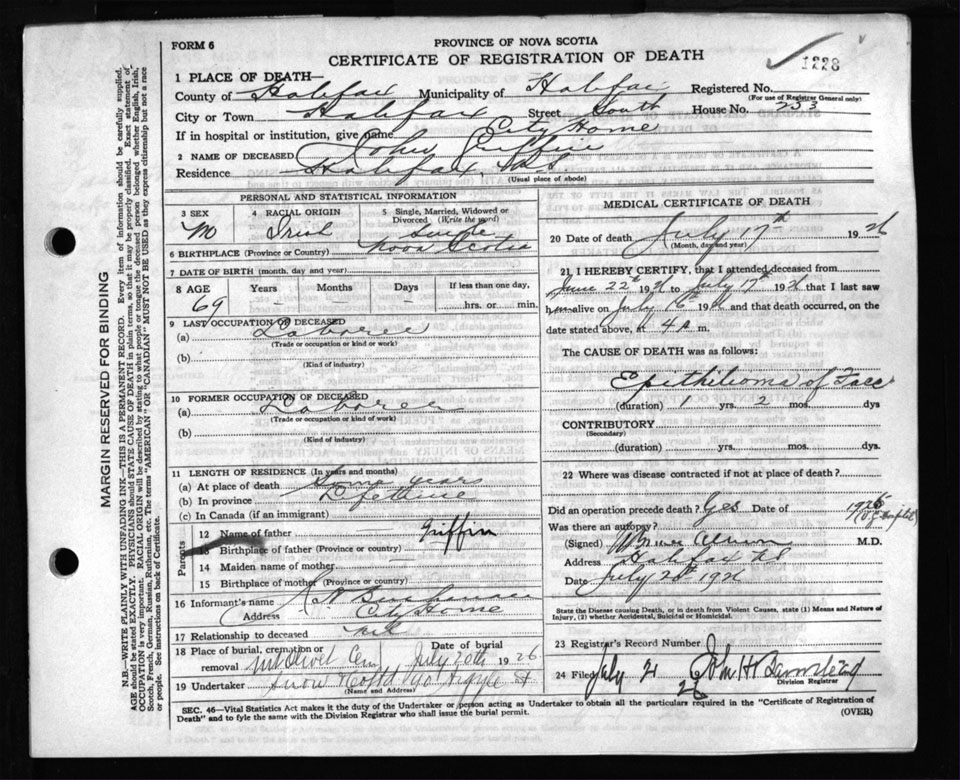 FORM 6
PROVINCE OF NOVA SCOTIA
CERTIFICATE OF REGISTRATION OF DEATH
1228
1 PLACE OF DEATH—
County of Halifax Municipality of Halifax Registered No.
(For use of Registrar General only)
City or Town Halifax Street South House No. 253
If in hospital or institution, give name City Home
2 NAME OF DECEASED John Griffin
Residence Halifax, N.S.
(Usual place of abode)
PERSONAL AND STATISTICAL INFORMATION
3 SEX M
4 RACIAL ORIGIN Irish
5 Single, Married, Widowed or Divorced (Write the word) Single
6 BIRTHPLACE (Province or Country) Nova Scotia
7 DATE OF BIRTH (month, day and year)
8 AGE 69 Years — Months — Days — If less than one day, hrs. or min.
9 LAST OCCUPATION OF DECEASED
(a) Laborer
(Trade or occupation or kind or work)
(b)
(Kind of industry)
10 FORMER OCCUPATION OF DECEASED
(a) Laborer
(Trade or occupation or kind of work)
(b)
(Kind of industry)
11 LENGTH OF RESIDENCE (In years and months)
(a) At place of death Some years
(b) In province Lifetime
(c) In Canada (if an immigrant)
Parents
12 Name of father Griffin
13 Birthplace of father (Province or country)
14 Maiden name of mother
15 Birthplace of mother (Province or country)
16 Informant's name Buchanan
Address City Home
17 Relationship to deceased Nil
18 Place of burial, cremation or removal Mt Olivet Cem Date of burial July 20th 1926
19 Undertaker Snow & Co Ltd 90 Argyle St
(Name and Address)
MEDICAL CERTIFICATE OF DEATH
20 Date of death July 17th 1926
(Month, day and year)
21 I HEREBY CERTIFY, that I attended deceased from
June 22nd 1926 to July 17th 1926 that I last saw
him alive on July 16th 1926 and that death occurred, on the
date stated above, at 4 A m.
The CAUSE OF DEATH was as follows:
Epithilioma of Face
(duration) 1 yrs. 2 mos. dys
CONTRIBUTORY
(Secondary)
(duration) yrs. mos. dys
22 Where was disease contracted if not at place of death?
Did an operation precede death? Yes Date of 1925
(V.G. Hospital)
Was there an autopsy?
(Signed) M.D.
Address Halifax N.S
Date July 20th 1926
State the Disease causing Death, or in death from Violent Causes, state (1) Means and Nature of
Injury, (2) whether Accidental, Suicidal or Homicidal.
23 Registrar's Record Number
24 Filed July 21 26 John H Barnstead
Division Registrar
SEC. 46—Vital Statistics Act makes it the duty of the Undertaker or person acting as Undertaker to obtain all the particulars required in the "Certificate of Registration of
Death" and to fyle the same with the Division Registrar who shall issue the burial permit.
(OVER)
MARGIN RESERVED FOR BINDING
N.B.—WRITE PLAINLY WITH UNFADING INK—THIS IS A PERMANENT RECORD. Every item of information should be carefully supplied.
AGE should be stated EXACTLY. PHYSICIANS should STATE CAUSE OF DEATH in plain terms, so that it may be properly classified. Exact statement of
OCCUPATION is very important. RACIAL ORIGIN will be described by stating to what people or tongue the deceased person belonged whether English, Irish,
Scotch, French, German, Russian, Ruthenian, etc. The terms "AMERICAN" OR "CANADIAN" MUST NOT BE USED as they express citizenship but not a race
or people. See instructions on back of Certificate.